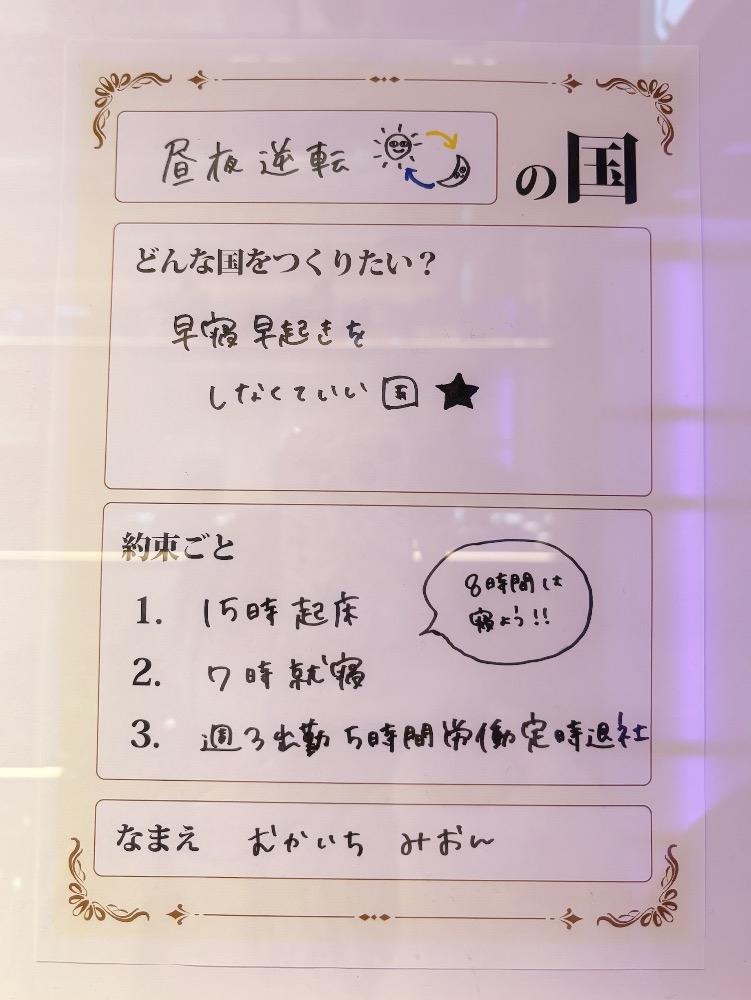 昼夜逆転 の国
どんな国をつくりたい？
早寝早起きを
しなくていい国★
約束ごと
1. 15時起床
8時間は
寝よう!!
2. 7時就寝
3. 週3出勤5時間労働定時退社
なまえ むかいち みおん